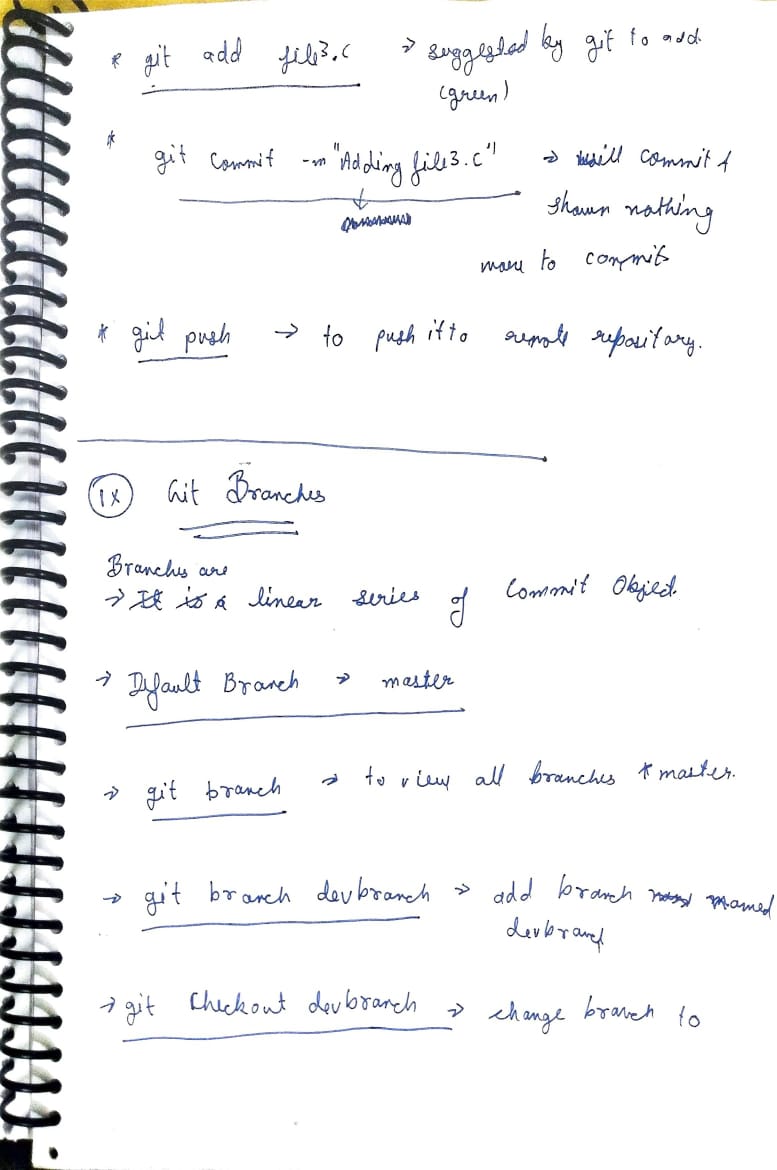 * git add file3.c → suggested by git to add.
(green)
* git commit -m "Adding file3.c" → will commit &
shown nothing
more to commit
* git push → to push it to remote repository.
IX Git Branches
Branches are
→ It is a linear series of Commit Object.
→ Default Branch → master
→ git branch → to view all branches * master.
→ git branch devbranch → add branch named
devbranch
→ git Checkout devbranch → change branch to